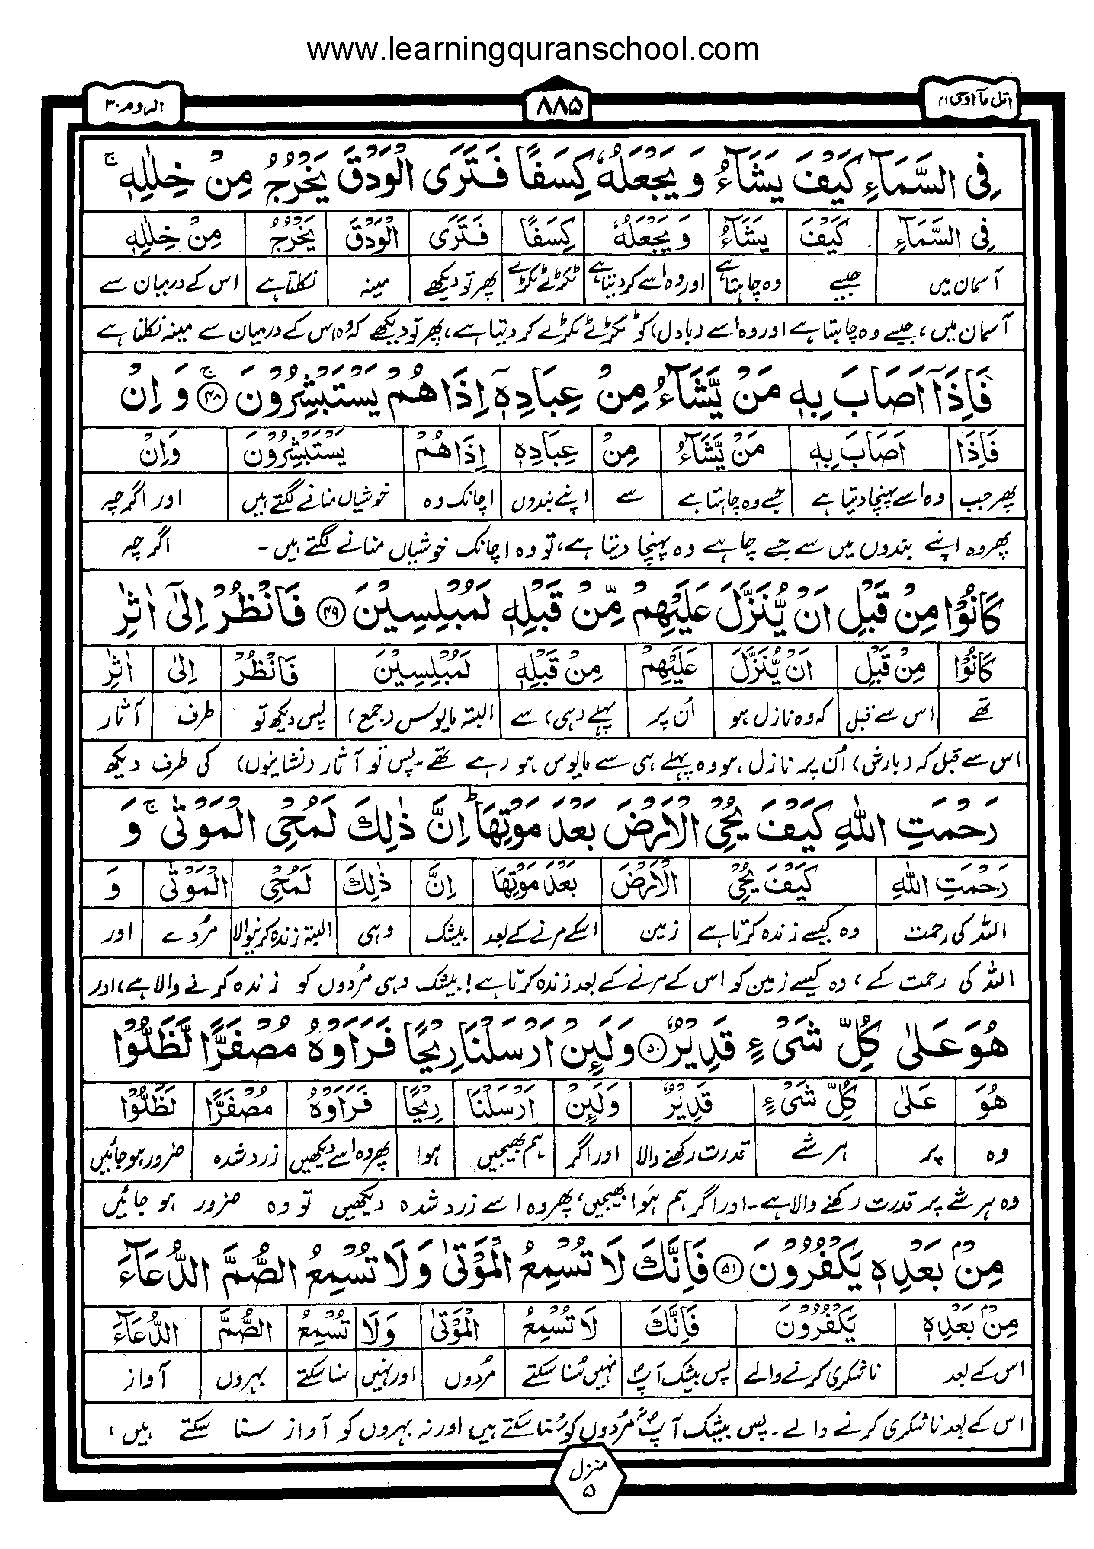 www.learningquranschool.com
الروم ٣٠
٨٨۵
اتل مآ اوحی ٢١
فِی السَّمَآءِ كَیْفَ یَشَآءُ وَ یَجْعَلُهٗ كِسَفًا فَتَرَی الْوَدْقَ یَخْرُجُ مِنْ خِلٰلِهٖ ۚ
فِی السَّمَآءِ كَیْفَ یَشَآءُ وَ یَجْعَلُهٗ كِسَفًا فَتَرَی الْوَدْقَ یَخْرُجُ مِنْ خِلٰلِهٖ
آسمان میں جیسے وہ چاہتا ہے اور وہ اسے کر دیتا ہے ٹکڑے ٹکڑے پھر تو دیکھے مینہ نکلتا ہے اس کے درمیان سے
آسمان میں، جیسے وہ چاہتا ہے اور وہ اسے (بادل) کو ٹکڑے ٹکڑے کر دیتا ہے، پھر تو دیکھے کہ وہ اس کے درمیان سے مینہ نکلتا ہے
فَاِذَاۤ اَصَابَ بِهٖ مَنْ یَّشَآءُ مِنْ عِبَادِهٖۤ اِذَا هُمْ یَسْتَبْشِرُوْنَ ۚ ﴿۴۸﴾ وَ اِنْ
فَاِذَا اَصَابَ بِهٖ مَنْ یَّشَآءُ مِنْ عِبَادِهٖ اِذَا هُمْ یَسْتَبْشِرُوْنَ وَاِنْ
پھر جب وہ اسے پہنچا دیتا ہے جسے وہ چاہتا ہے سے اپنے بندوں اچانک وہ خوشیاں منانے لگتے ہیں اور اگرچہ
پھر وہ اپنے بندوں میں سے جسے چاہے وہ پہنچا دیتا ہے، تو وہ اچانک خوشیاں منانے لگتے ہیں۔ اگرچہ
كَانُوْا مِنْ قَبْلِ اَنْ یُّنَزَّلَ عَلَیْهِمْ مِّنْ قَبْلِهٖ لَمُبْلِسِیْنَ ﴿۴۹﴾ فَانْظُرْ اِلٰۤی اٰثٰرِ
كَانُوْا مِنْ قَبْلِ اَنْ یُّنَزَّلَ عَلَیْهِمْ مِنْ قَبْلِهٖ لَمُبْلِسِیْنَ فَانْظُرْ اِلٰی اٰثٰرِ
تھے اس سے قبل کہ وہ نازل ہو اُن پر پہلے (ہی) سے البتہ مایوس (جمع) پس دیکھ تو طرف آثار
اس سے قبل کہ (بارش) اُن پر نازل ہو وہ پہلے ہی سے مایوس ہو رہے تھے۔ پس تو آثار (نشانیوں) کی طرف دیکھ
رَحْمَتِ اللّٰهِ كَیْفَ یُحْیِ الْاَرْضَ بَعْدَ مَوْتِهَا ؕ اِنَّ ذٰلِكَ لَمُحْیِ الْمَوْتٰی ۚ وَ
رَحْمَتِ اللّٰهِ كَیْفَ یُحْیِ الْاَرْضَ بَعْدَ مَوْتِهَا اِنَّ ذٰلِكَ لَمُحْیِ الْمَوْتٰی وَ
اللہ کی رحمت وہ کیسے زندہ کرتا ہے زمین اسکے مرنے کے بعد بیشک وہی البتہ زندہ کرنیوالا مُردے اور
اللہ کی رحمت کے، وہ کیسے زمین کو اس کے مرنے کے بعد زندہ کرتا ہے! بیشک وہی مُردوں کو زندہ کرنے والا ہے، اور
هُوَ عَلٰی كُلِّ شَیْءٍ قَدِیْرٌ ﴿۵۰﴾ وَلَئِنْ اَرْسَلْنَا رِیْحًا فَرَاَوْهُ مُصْفَرًّا لَّظَلُّوْا
هُوَ عَلٰی كُلِّ شَیْءٍ قَدِیْرٌ وَلَئِنْ اَرْسَلْنَا رِیْحًا فَرَاَوْهُ مُصْفَرًّا لَظَلُّوْا
وہ پر ہر شے قدرت رکھنے والا اور اگر ہم بھیجیں ہوا پھر وہ اسے دیکھیں زرد شدہ ضرور ہو جائیں
وہ ہر شے پر قدرت رکھنے والا ہے۔ اور اگر ہم ہوا بھیجیں، پھر وہ اسے زرد شدہ دیکھیں تو وہ ضرور ہو جائیں
مِنْ بَعْدِهٖ یَكْفُرُوْنَ ﴿۵۱﴾ فَاِنَّكَ لَا تُسْمِعُ الْمَوْتٰی وَلَا تُسْمِعُ الصُّمَّ الدُّعَآءَ
مِنْ بَعْدِهٖ یَكْفُرُوْنَ فَاِنَّكَ لَا تُسْمِعُ الْمَوْتٰی وَلَا تُسْمِعُ الصُّمَّ الدُّعَآءَ
اس کے بعد ناشکری کرنے والے پس بیشک آپؐ نہیں سُنا سکتے مُردوں اور نہیں سنا سکتے بہروں آواز
اس کے بعد ناشکری کرنے والے۔ پس بیشک آپؐ مُردوں کو سُنا سکتے ہیں اور نہ بہروں کو آواز سنا سکتے ہیں،
منزل
۵